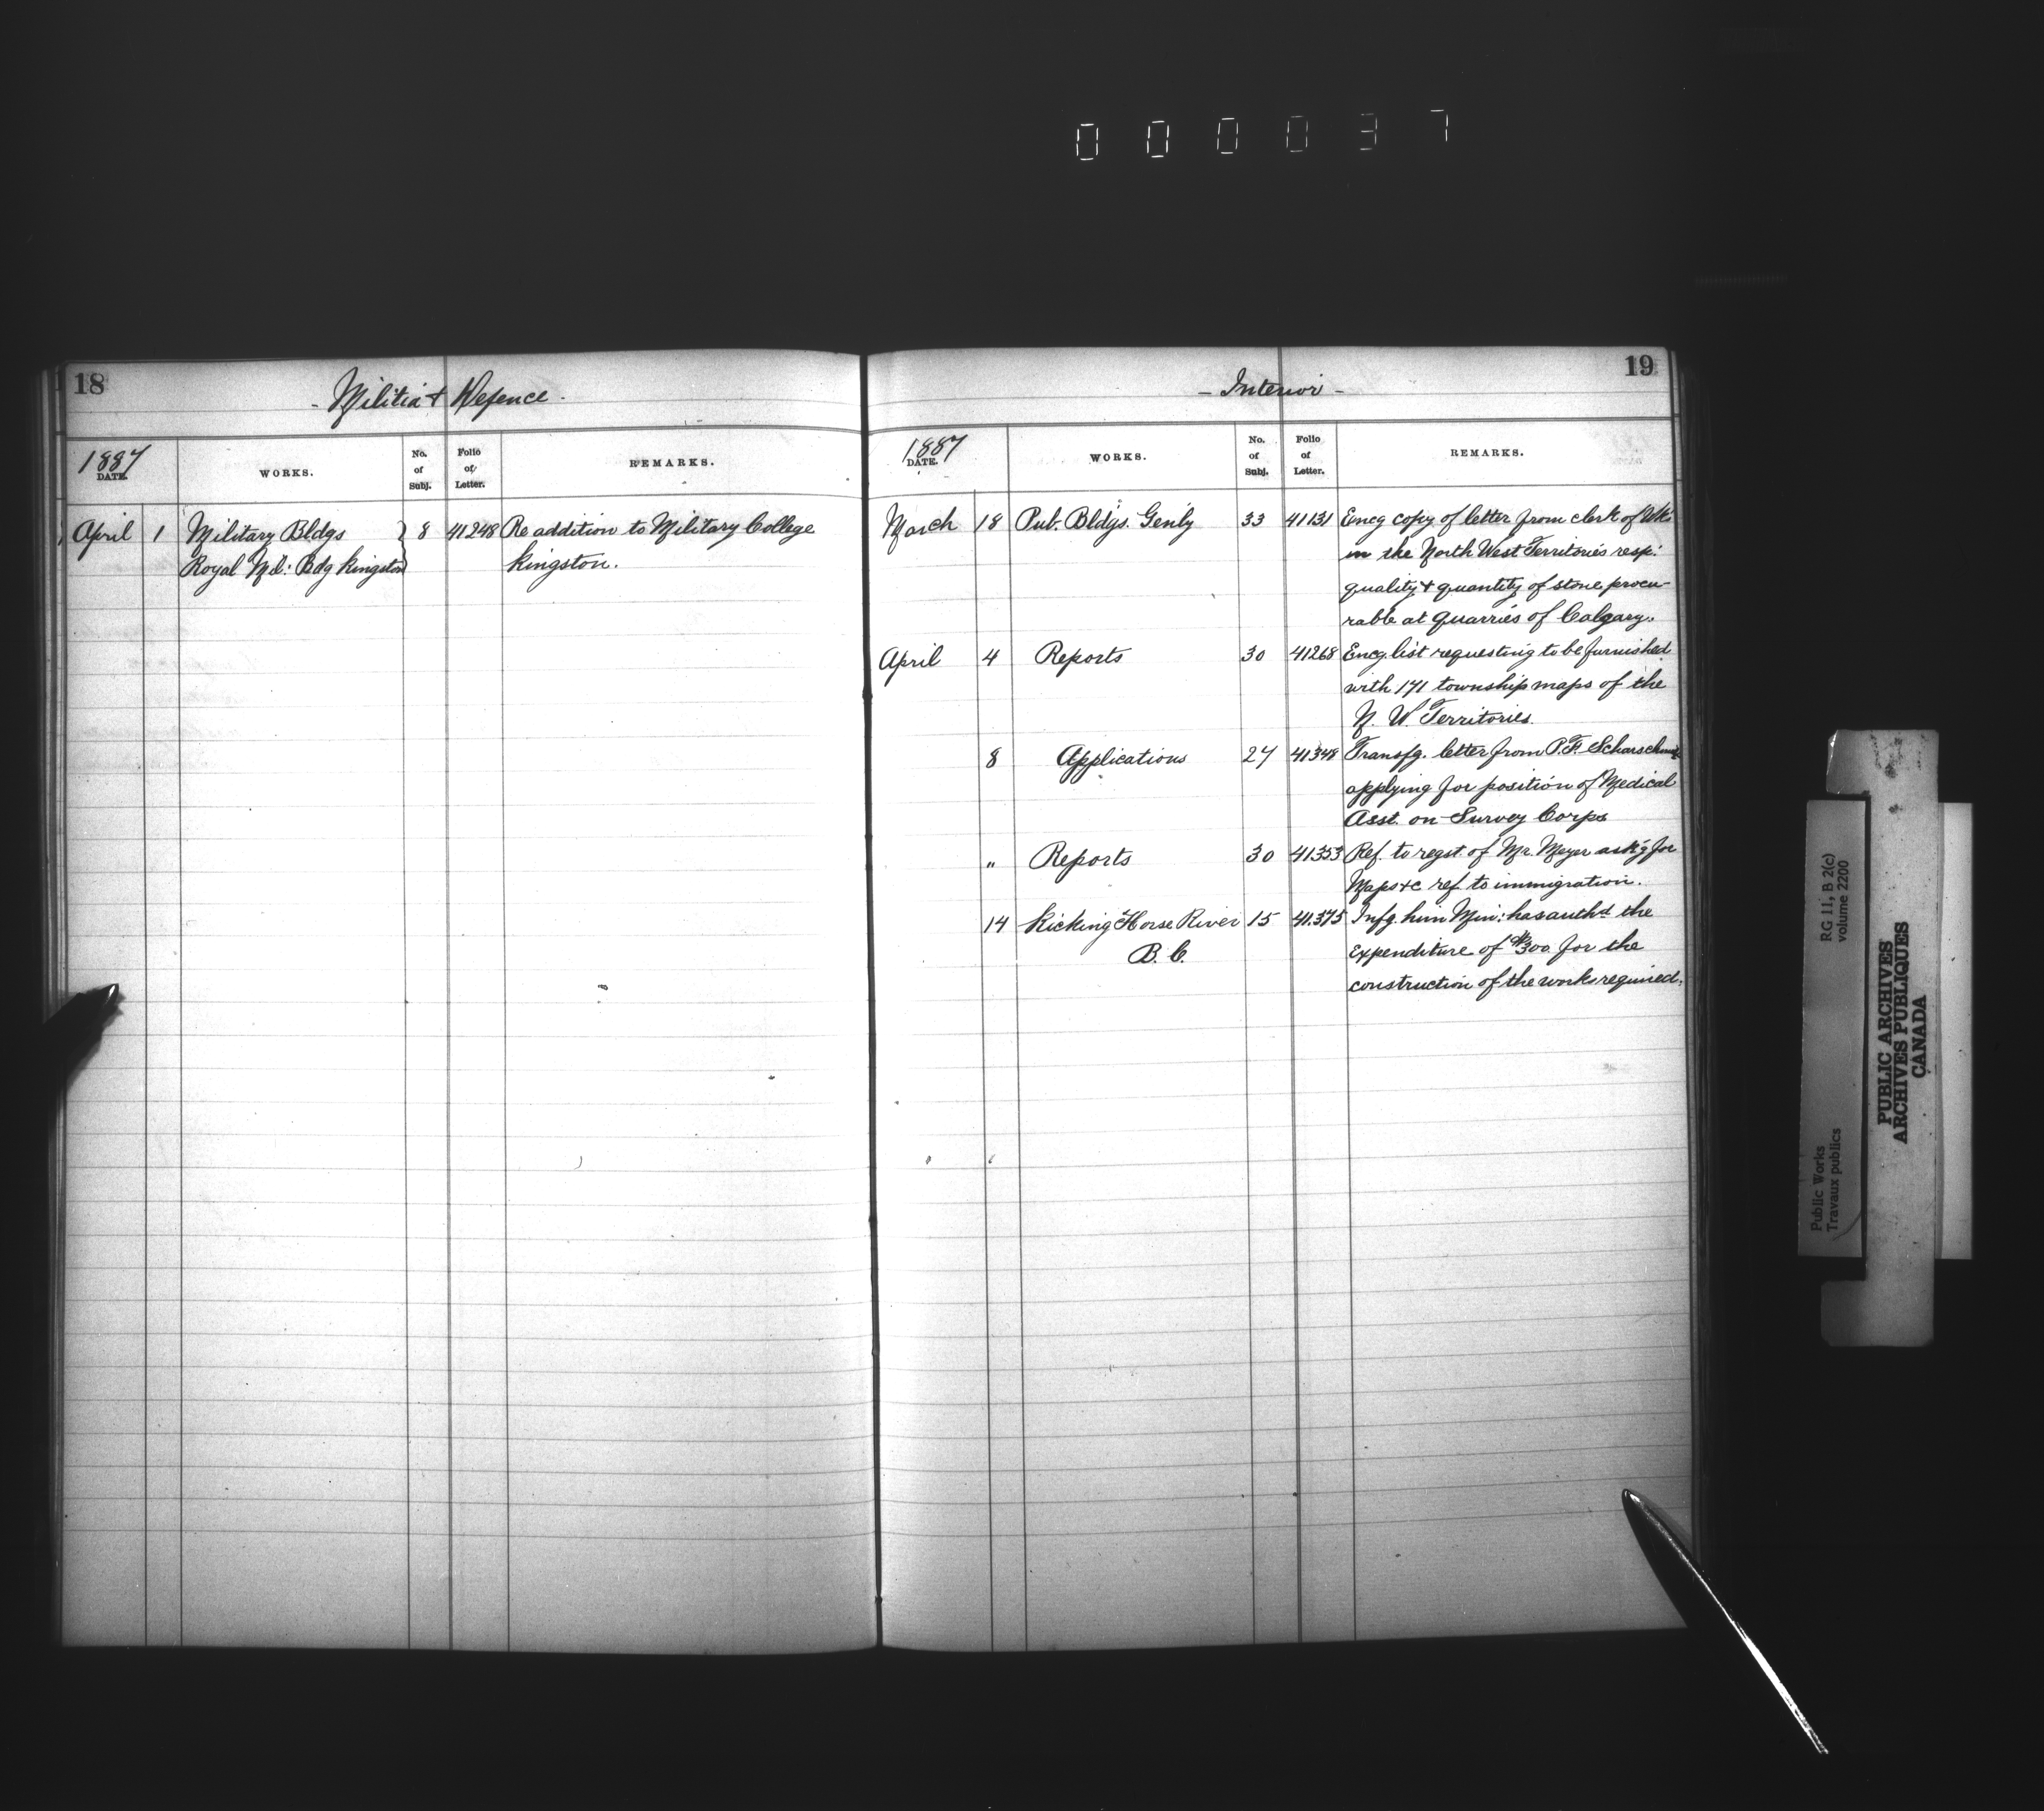 000037
18
- Militia & Defence -
1887
DATE.
WORKS.
No. of Subj.
Folio of Letter.
REMARKS.
April 1 Military Bldgs } 8 41248 Re addition to Military College
Royal Mil: Bdg Kingston } Kingston.
19
- Interior -
1887
DATE.
WORKS.
No. of Subj.
Folio of Letter.
REMARKS.
March 18 Pub. Bldgs. Genly 33 41131 Encg copy of letter from clerk of Wks
in the North West Territories resp:
quality & quantity of stone procu-
rable at quarries of Calgary.
April 4 Reports 30 41268 Encg. list requesting to be furnished
with 171 township maps of the
N. W. Territories.
8 Applications 27 41348 Transfg. letter from P.F. Scharschmidt
applying for position of Medical
Asst. on Survey Corps
" Reports 30 41353 Ref. to reqst. of Mr. Meyer ask'g for
Maps &c ref. to immigration.
14 Kicking Horse River 15 41.375 Infg. him Min: has authd. the
B.C. Expenditure of $300. for the
construction of the works required.
Public Works
Travaux publics
RG 11, B 2(c)
volume 2200
PUBLIC ARCHIVES
ARCHIVES PUBLIQUES
CANADA